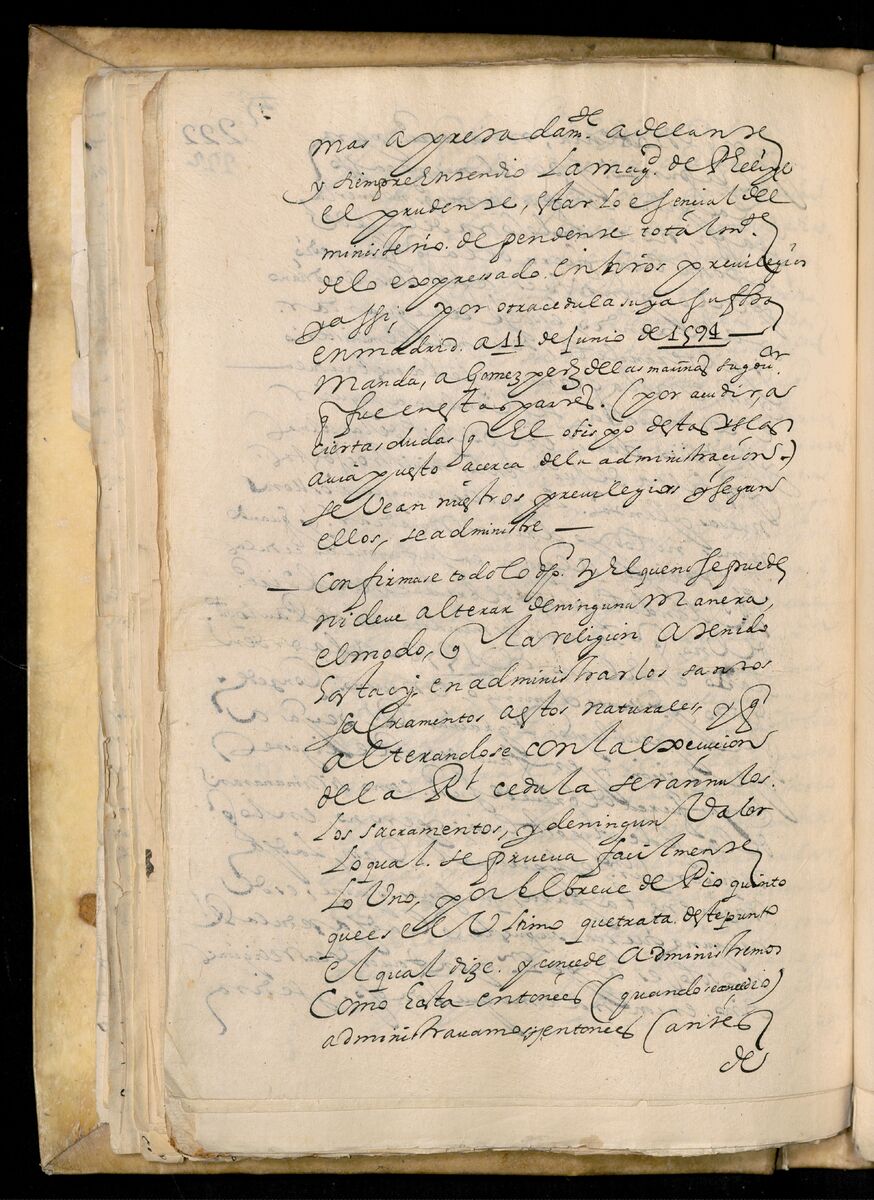 mas apresadam.te adelante
y siempre entendio La mag.d de Phelipe
el prudente, estar lo esencial del
ministerio. dependente totalm.te
delo expressado. en nros previlegios
y assi, por otra cedula suya su fha
en madrid. a 11 de Junio de 1594 —
Manda, a Gomez perez de las mariñas su gou.or
q fue en estas partes. (por acudir, a
ciertas dudas q El obispo destas yslas
auia puesto acerca de la administracion.)
se Vean nuestros previlegios y segun
ellos, se administre —
— Confirmase todo lo dho. y El que no se puede
ni deve alterar de ninguna Manera,
el modo, q la religion a tenido
hasta aqui, en administrar los santos
sacramentos a estos naturales, y q
alterandose con la execucion
de la Rl cedula seran nulos.
Los sacramentos, y de ningun Valor
Lo qual. se prueva facilmente
Lo Uno, por el breve de Pio quinto
que es el Ultimo que trata deste punto
el qual dize. y concede administremos
Como hasta entonces (quando se concedio)
administrauamos, y entonces (antes
de